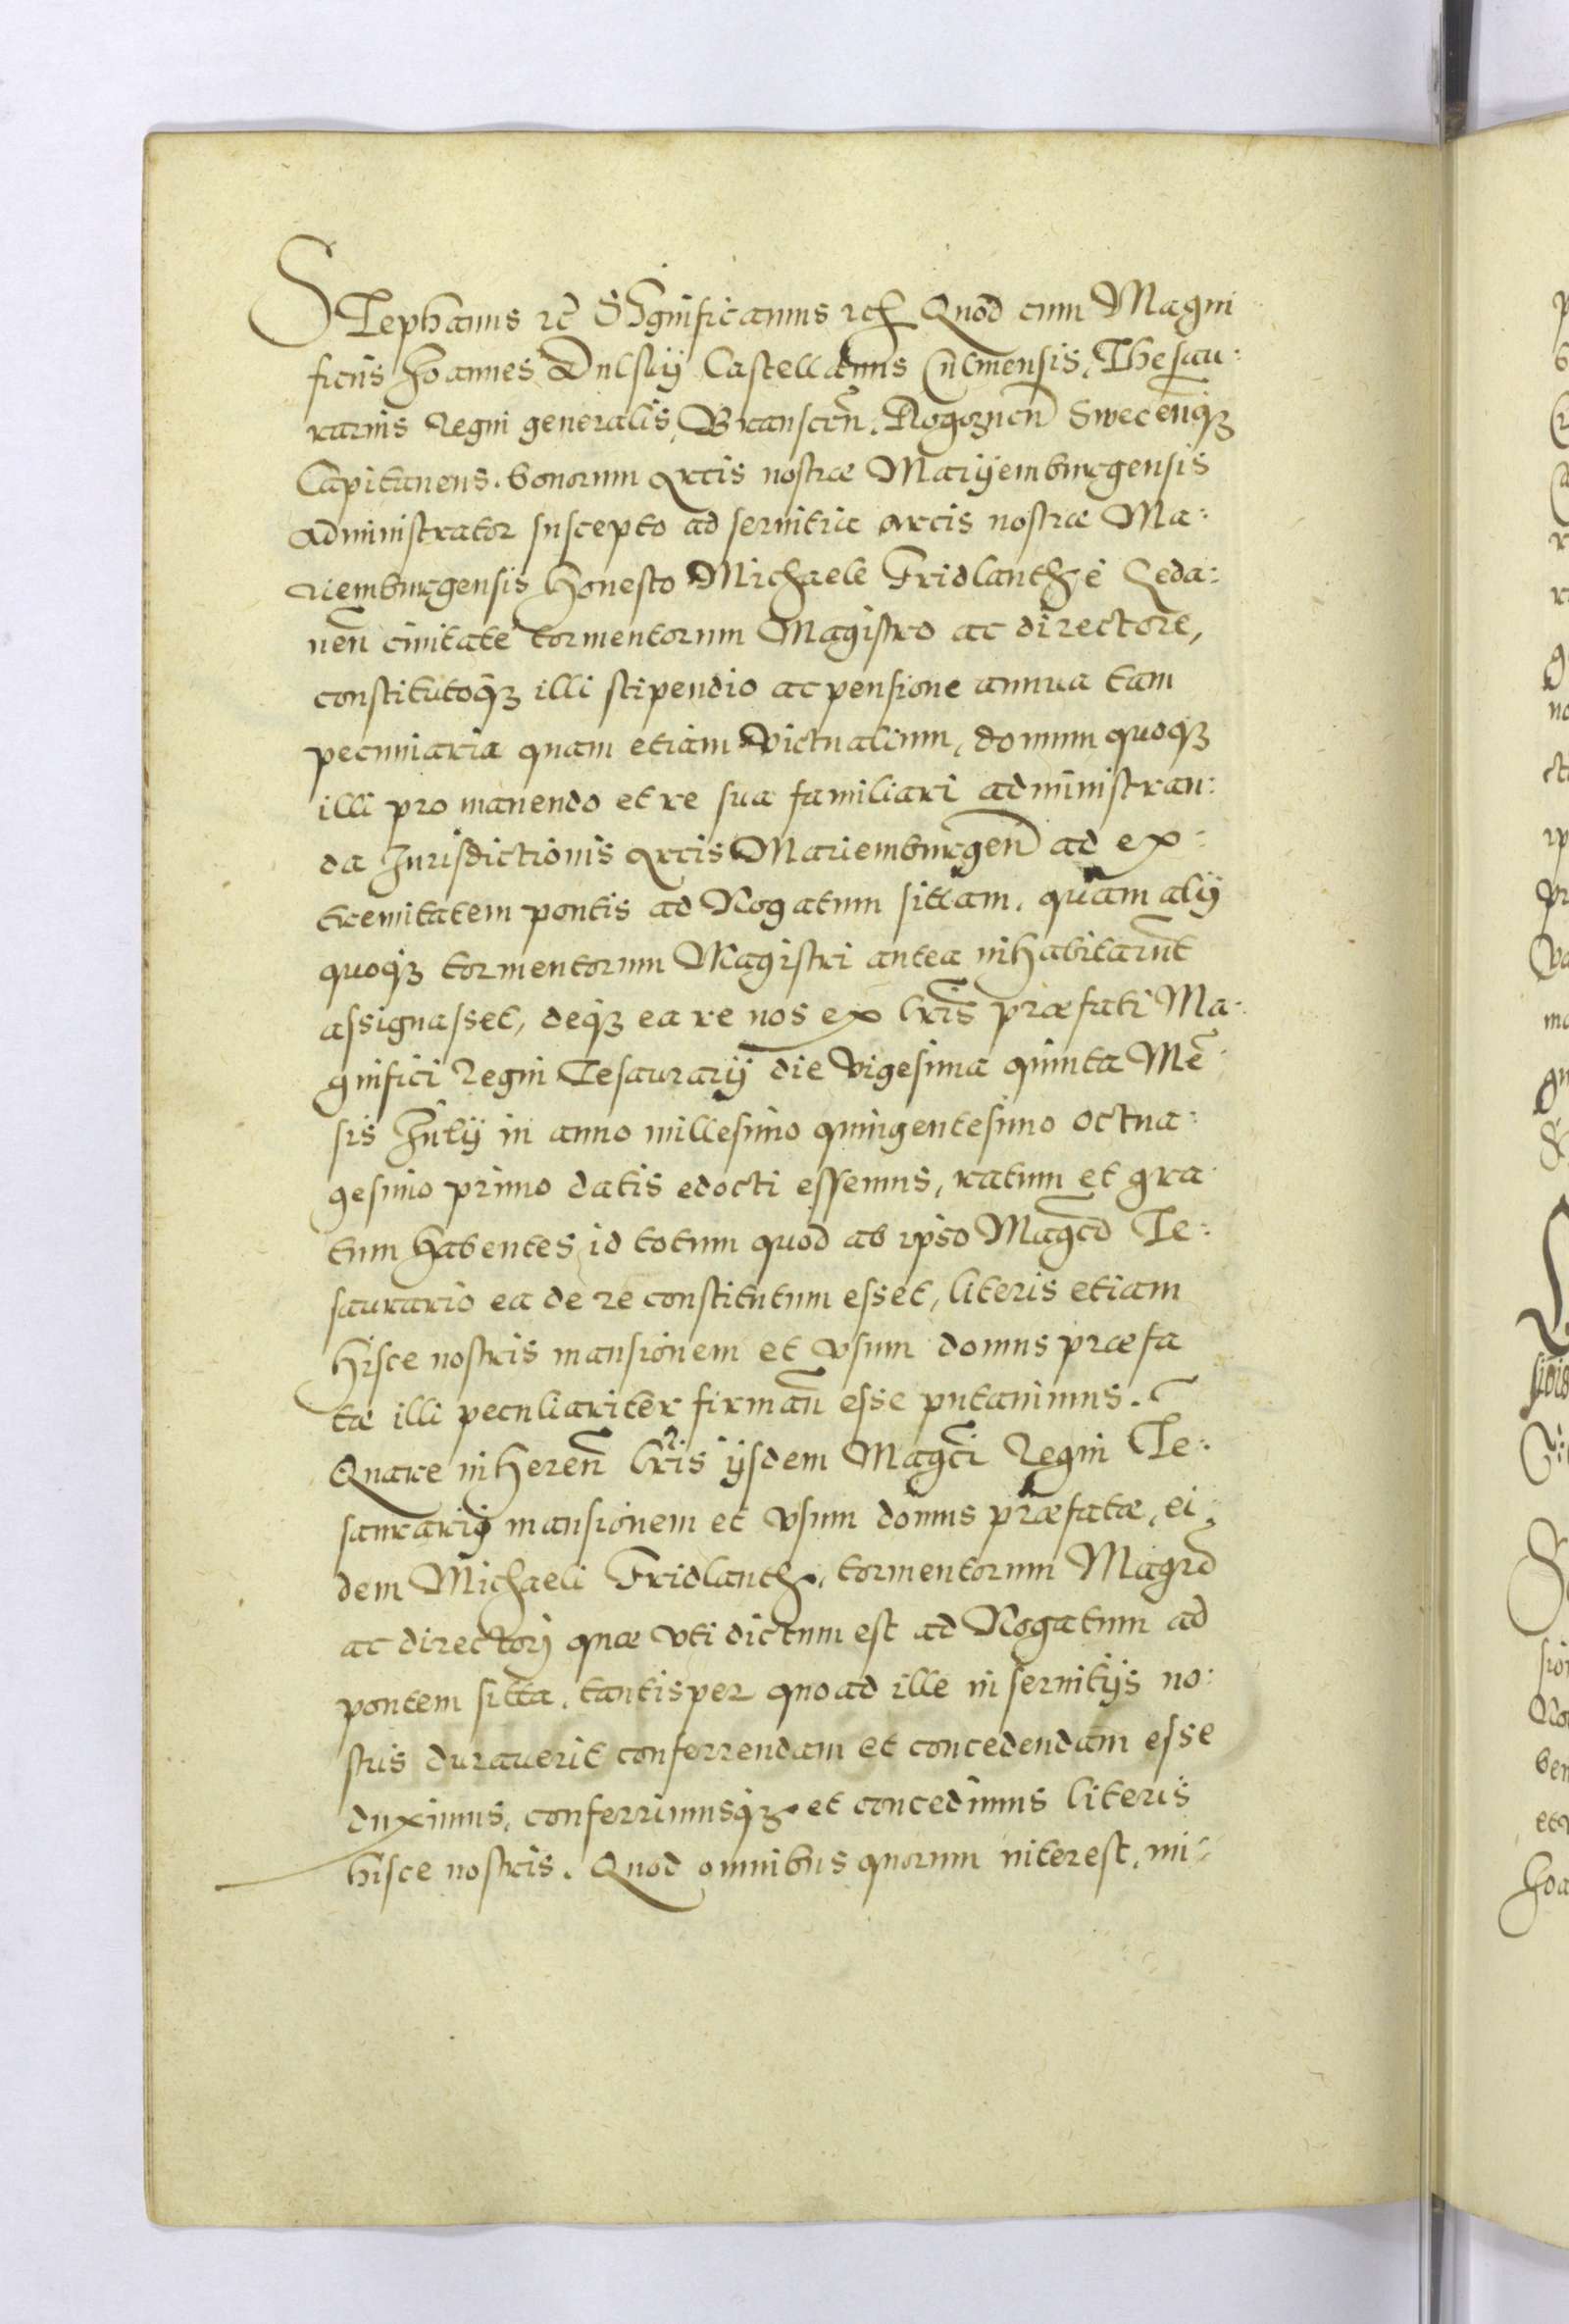 STephanus etc Significamus etc Quod cum Magni
ficus Joannes Dulsky Castellanus Culmensis, Thesau:
rarius Regni generalis, Branscen̄. Rogoznen̄ Swecen̄q₃
Capitaneus. bonorum Arcis nostræ Mariiemburgensis
Administrator suscepto ad seruitia arcis nostræ Ma:
riemburgensis honesto Michaele Fridlanth è Geda:
nen̄ ciuitate tormentorum Magistro ac directore,
constitutoq₃ illi stipendio ac pensione annua tam
pecuniaria quam etiam victualium, domum quoq₃
illi pro manendo et re sua familiari administran:
da Jurisdictionis Arcis Mariemburgen̄ ad ex:
tremitatem pontis ad Nogatum sittam, quam alij
quoq₃ tormentorum Magistri antea inhabitarūt
assignasset, deq₃ ea re nos ex lr̄is præfati Ma:
gnifici Regni Tesaurarij die vigesima quinta Mē
sis Julij in anno millesimo quingentesimo octua:
gesimo primo datis edocti essemus, ratum et gra
tum habentes id totum quod ab ipso Magco Te:
saurario ea de re constitutum esset, literis etiam
hisce nostris mansionem et vsum domus præfa
tæ illi peculiariter firman̄ esse putauimus.
Quare inheren̄ lr̄is ijsdem Magci Regni Te:
saurarij mansionem et vsum domus præfatæ, ei:
dem Michaeli Fridlanth, tormentorum Magrō
ac directorj quæ vti dictum est ad Nogatum ad
pontem sitta, tantisper quoad ille in seruitijs no:
stris durauerit conferrendam et concedendam esse
duximus, conferrimusq₃ et concedimus literis
hisce nostris. Quod omnibus quorum interest, mi: